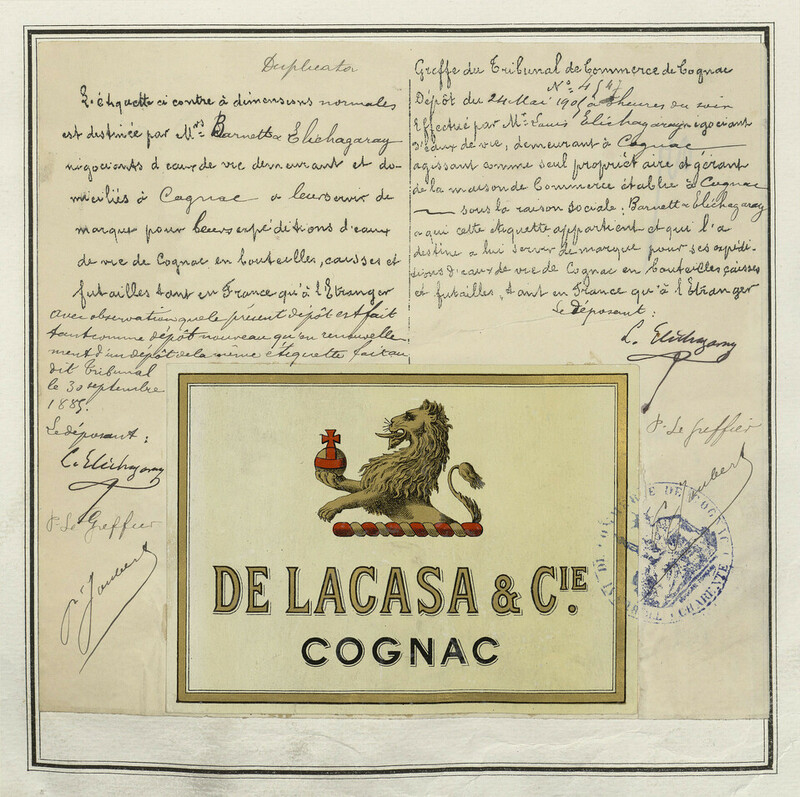 Duplicata
L'étiquette ci contre à dimensions normales
est destinée par Mrs Barnett & Elichagaray
négociants d'eaux de vie demeurant et do-
miciliés à Cognac a leur servir de
marque pour leurs expéditions d'eaux
de vie de Cognac en bouteilles, caisses et
futailles tant en France qu'à l'Etranger
avec observation que le présent dépôt est fait
tant comme dépôt nouveau qu'en renouvelle-
ment d'un dépôt de la même étiquette fait au
dit Tribunal
le 30 septembre
1885.
Le déposant :
L. Elichagaray
P. Le Greffier
Joubert
Greffe du Tribunal de Commerce de Cognac
Dépôt du 24 Mai 1901 à heures du soir
Effectué par Mr. Louis Elichagaray négociant
d'eaux de vie, demeurant à Cognac
agissant comme seul propriétaire et gérant
de la maison de Commerce établie à Cognac
sous la raison sociale : Barnett & Elichagaray
a qui cette étiquette appartient et qui l'a
destine a lui servir de marque pour ses expédi-
tions d'eaux de vie de Cognac en bouteilles, caisses
et futailles, tant en France qu'à l'Etranger
Le déposant :
L. Elichagaray
P. Le Greffier
Joubert
DE LACASA & CIE.
COGNAC
DE COMMERCE DE COGNAC
CHARENTE